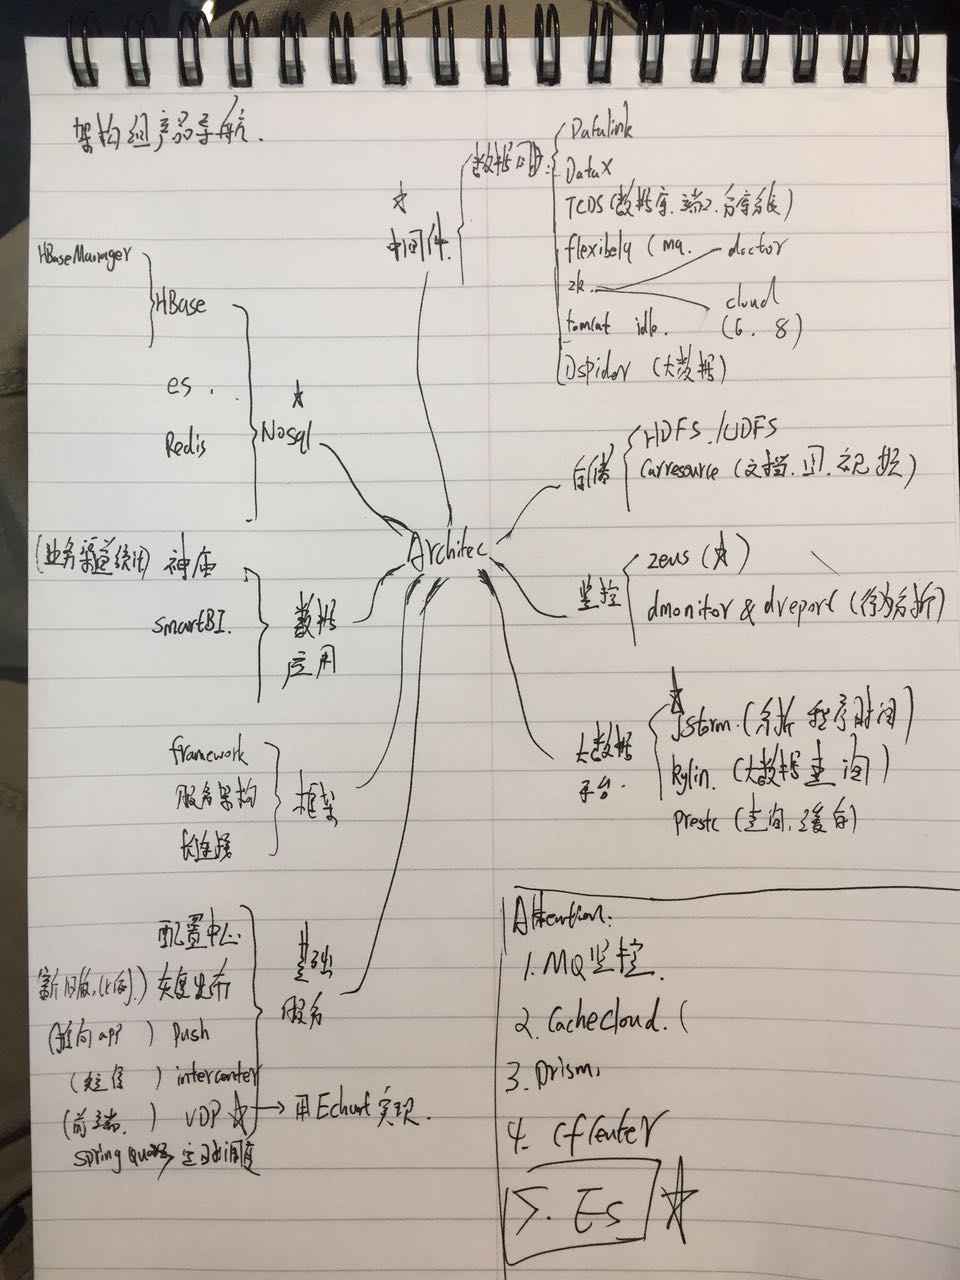 架构组产品导航.
数据同步:
Datalink
DataX
TCDS(数据库.端口.分库分表)
flexibely (mq.
doctor
zk.
cloud
(6. 8)
tomcat idle.
Dspider (大数据)
中间件.
HBaseManager
HBase
es.
Redis
NoSql
存储
HDFS./UDFS
Carresource (文档.图.
Architec
(业务渠道统计) 神庙
smartBI.
数据
应用
监控
zeus (☆)
dmonitor & dreport (行为分析)
大数据
平台.
Jstorm.(分析 程序时间)
kylin. (大数据查询)
Prestc (查询.缓存)
framework
服务架构
长连接
框架
基础
服务
配置中心.
新旧版.(比例.) 灰度发布
(推向app ) Push
(短信 ) intercenter
(前端. ) VDP ☆ → 用Echart实现.
Spring Quartz 定时调度
Attention:
1. MQ监控.
2. Cachecloud. (
3. Prism,
4. cfcenter
5. Es ☆